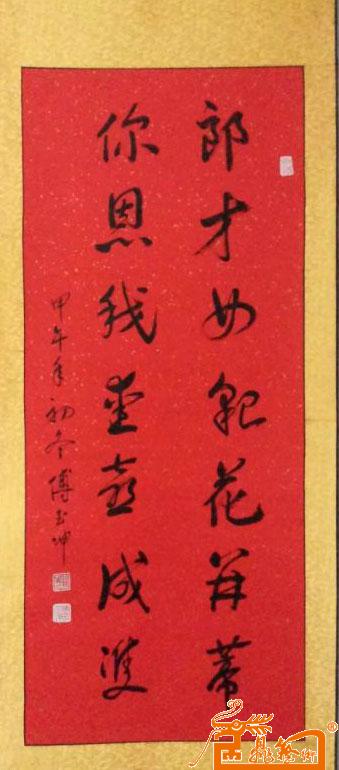 郎才女貌花并蒂
你恩我爱喜成双
甲午年初冬傅玉坤